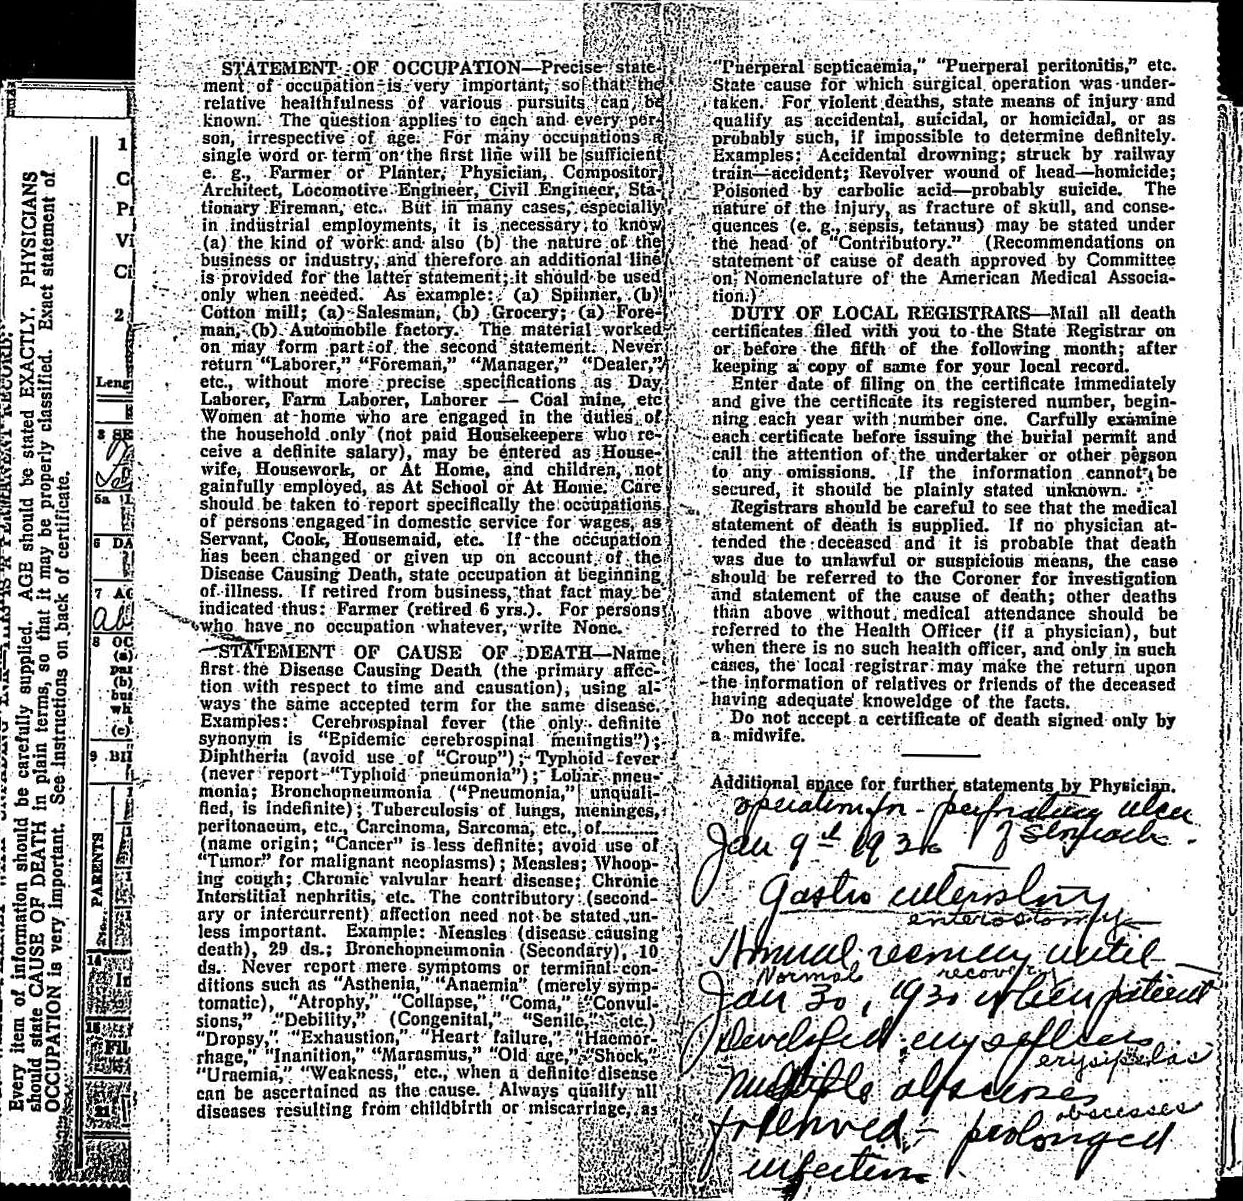 Every item of information should be carefully supplied. AGE should be stated EXACTLY. PHYSICIANS
should state CAUSE OF DEATH in plain terms, so that it may be properly classified. Exact statement of
OCCUPATION is very important. See instructions on back of certificate.
1
2
Leng
3 SE
5a
6 DA
7 AG
8 OC
(a)
par
(b)
bus
wh
(c)
9 BII
PARENTS
14
15
Fil
21
STATEMENT OF OCCUPATION—Precise state-
ment of occupation is very important, so that the
relative healthfulness of various pursuits can be
known. The question applies to each and every per-
son, irrespective of age. For many occupations a
single word or term on the first line will be sufficient
e. g., Farmer or Planter, Physician, Compositor,
Architect, Locomotive Engineer, Civil Engineer, Sta-
tionary Fireman, etc. But in many cases, especially
in industrial employments, it is necessary to know
(a) the kind of work and also (b) the nature of the
business or industry, and therefore an additional line
is provided for the latter statement; it should be used
only when needed. As example: (a) Spinner, (b)
Cotton mill; (a) Salesman, (b) Grocery; (a) Fore-
man, (b) Automobile factory. The material worked
on may form part of the second statement. Never
return "Laborer," "Foreman," "Manager," "Dealer,"
etc., without more precise specifications as Day
Laborer, Farm Laborer, Laborer — Coal mine, etc
Women at home who are engaged in the duties of
the household only (not paid Housekeepers who re-
ceive a definite salary), may be entered as House-
wife, Housework, or At Home, and children, not
gainfully employed, as At School or At Home. Care
should be taken to report specifically the occupations
of persons engaged in domestic service for wages, as
Servant, Cook, Housemaid, etc. If the occupation
has been changed or given up on account of the
Disease Causing Death, state occupation at beginning
of illness. If retired from business, that fact may be
indicated thus: Farmer (retired 6 yrs.). For persons
who have no occupation whatever, write None.
STATEMENT OF CAUSE OF DEATH—Name
first the Disease Causing Death (the primary affec-
tion with respect to time and causation), using al-
ways the same accepted term for the same disease.
Examples: Cerebrospinal fever (the only definite
synonym is "Epidemic cerebrospinal meningtis");
Diphtheria (avoid use of "Croup"); Typhoid fever
(never report "Typhoid pneumonia"); Lobar pneu-
monia; Bronchopneumonia ("Pneumonia," unquali-
fied, is indefinite); Tuberculosis of lungs, meninges,
peritonaeum, etc., Carcinoma, Sarcoma, etc., of..........
(name origin; "Cancer" is less definite; avoid use of
"Tumor" for malignant neoplasms); Measles; Whoop-
ing cough; Chronic valvular heart disease; Chronic
Interstitial nephritis, etc. The contributory (second-
ary or intercurrent) affection need not be stated un-
less important. Example: Measles (disease causing
death), 29 ds.; Bronchopneumonia (Secondary), 10
ds. Never report mere symptoms or terminal con-
ditions such as "Asthenia," "Anaemia" (merely symp-
tomatic), "Atrophy," "Collapse," "Coma," "Convul-
sions," "Debility," (Congenital," "Senile," etc.)
"Dropsy," "Exhaustion," "Heart failure," "Haemor-
rhage," "Inanition," "Marasmus," "Old age," "Shock,"
"Uraemia," "Weakness," etc., when a definite disease
can be ascertained as the cause. Always qualify all
diseases resulting from childbirth or miscarriage, as
"Puerperal septicaemia," "Puerperal peritonitis," etc.
State cause for which surgical operation was under-
taken. For violent deaths, state means of injury and
qualify as accidental, suicidal, or homicidal, or as
probably such, if impossible to determine definitely.
Examples: Accidental drowning; struck by railway
train—accident; Revolver wound of head—homicide;
Poisoned by carbolic acid—probably suicide. The
nature of the injury, as fracture of skull, and conse-
quences (e. g., sepsis, tetanus) may be stated under
the head of "Contributory." (Recommendations on
statement of cause of death approved by Committee
on Nomenclature of the American Medical Associa-
tion.)
DUTY OF LOCAL REGISTRARS—Mail all death
certificates filed with you to the State Registrar on
or before the fifth of the following month; after
keeping a copy of same for your local record.
Enter date of filing on the certificate immediately
and give the certificate its registered number, begin-
ning each year with number one. Carfully examine
each certificate before issuing the burial permit and
call the attention of the undertaker or other person
to any omissions. If the information cannot be
secured, it should be plainly stated unknown.
Registrars should be careful to see that the medical
statement of death is supplied. If no physician at-
tended the deceased and it is probable that death
was due to unlawful or suspicious means, the case
should be referred to the Coroner for investigation
and statement of the cause of death; other deaths
than above without medical attendance should be
referred to the Health Officer (if a physician), but
when there is no such health officer, and only in such
cases, the local registrar may make the return upon
the information of relatives or friends of the deceased
having adequate knoweldge of the facts.
Do not accept a certificate of death signed only by
a midwife.
Additional space for further statements by Physician.
operation for perforating ulcer
Jan 9th of stomach.
Gastro
enterostomy
Normal recovery until
Normal recovery
Jan 30, 1930 when patient
Developed erysipelas
erysipelas
Multiple abscesses
abscesses
followed - prolonged
infection